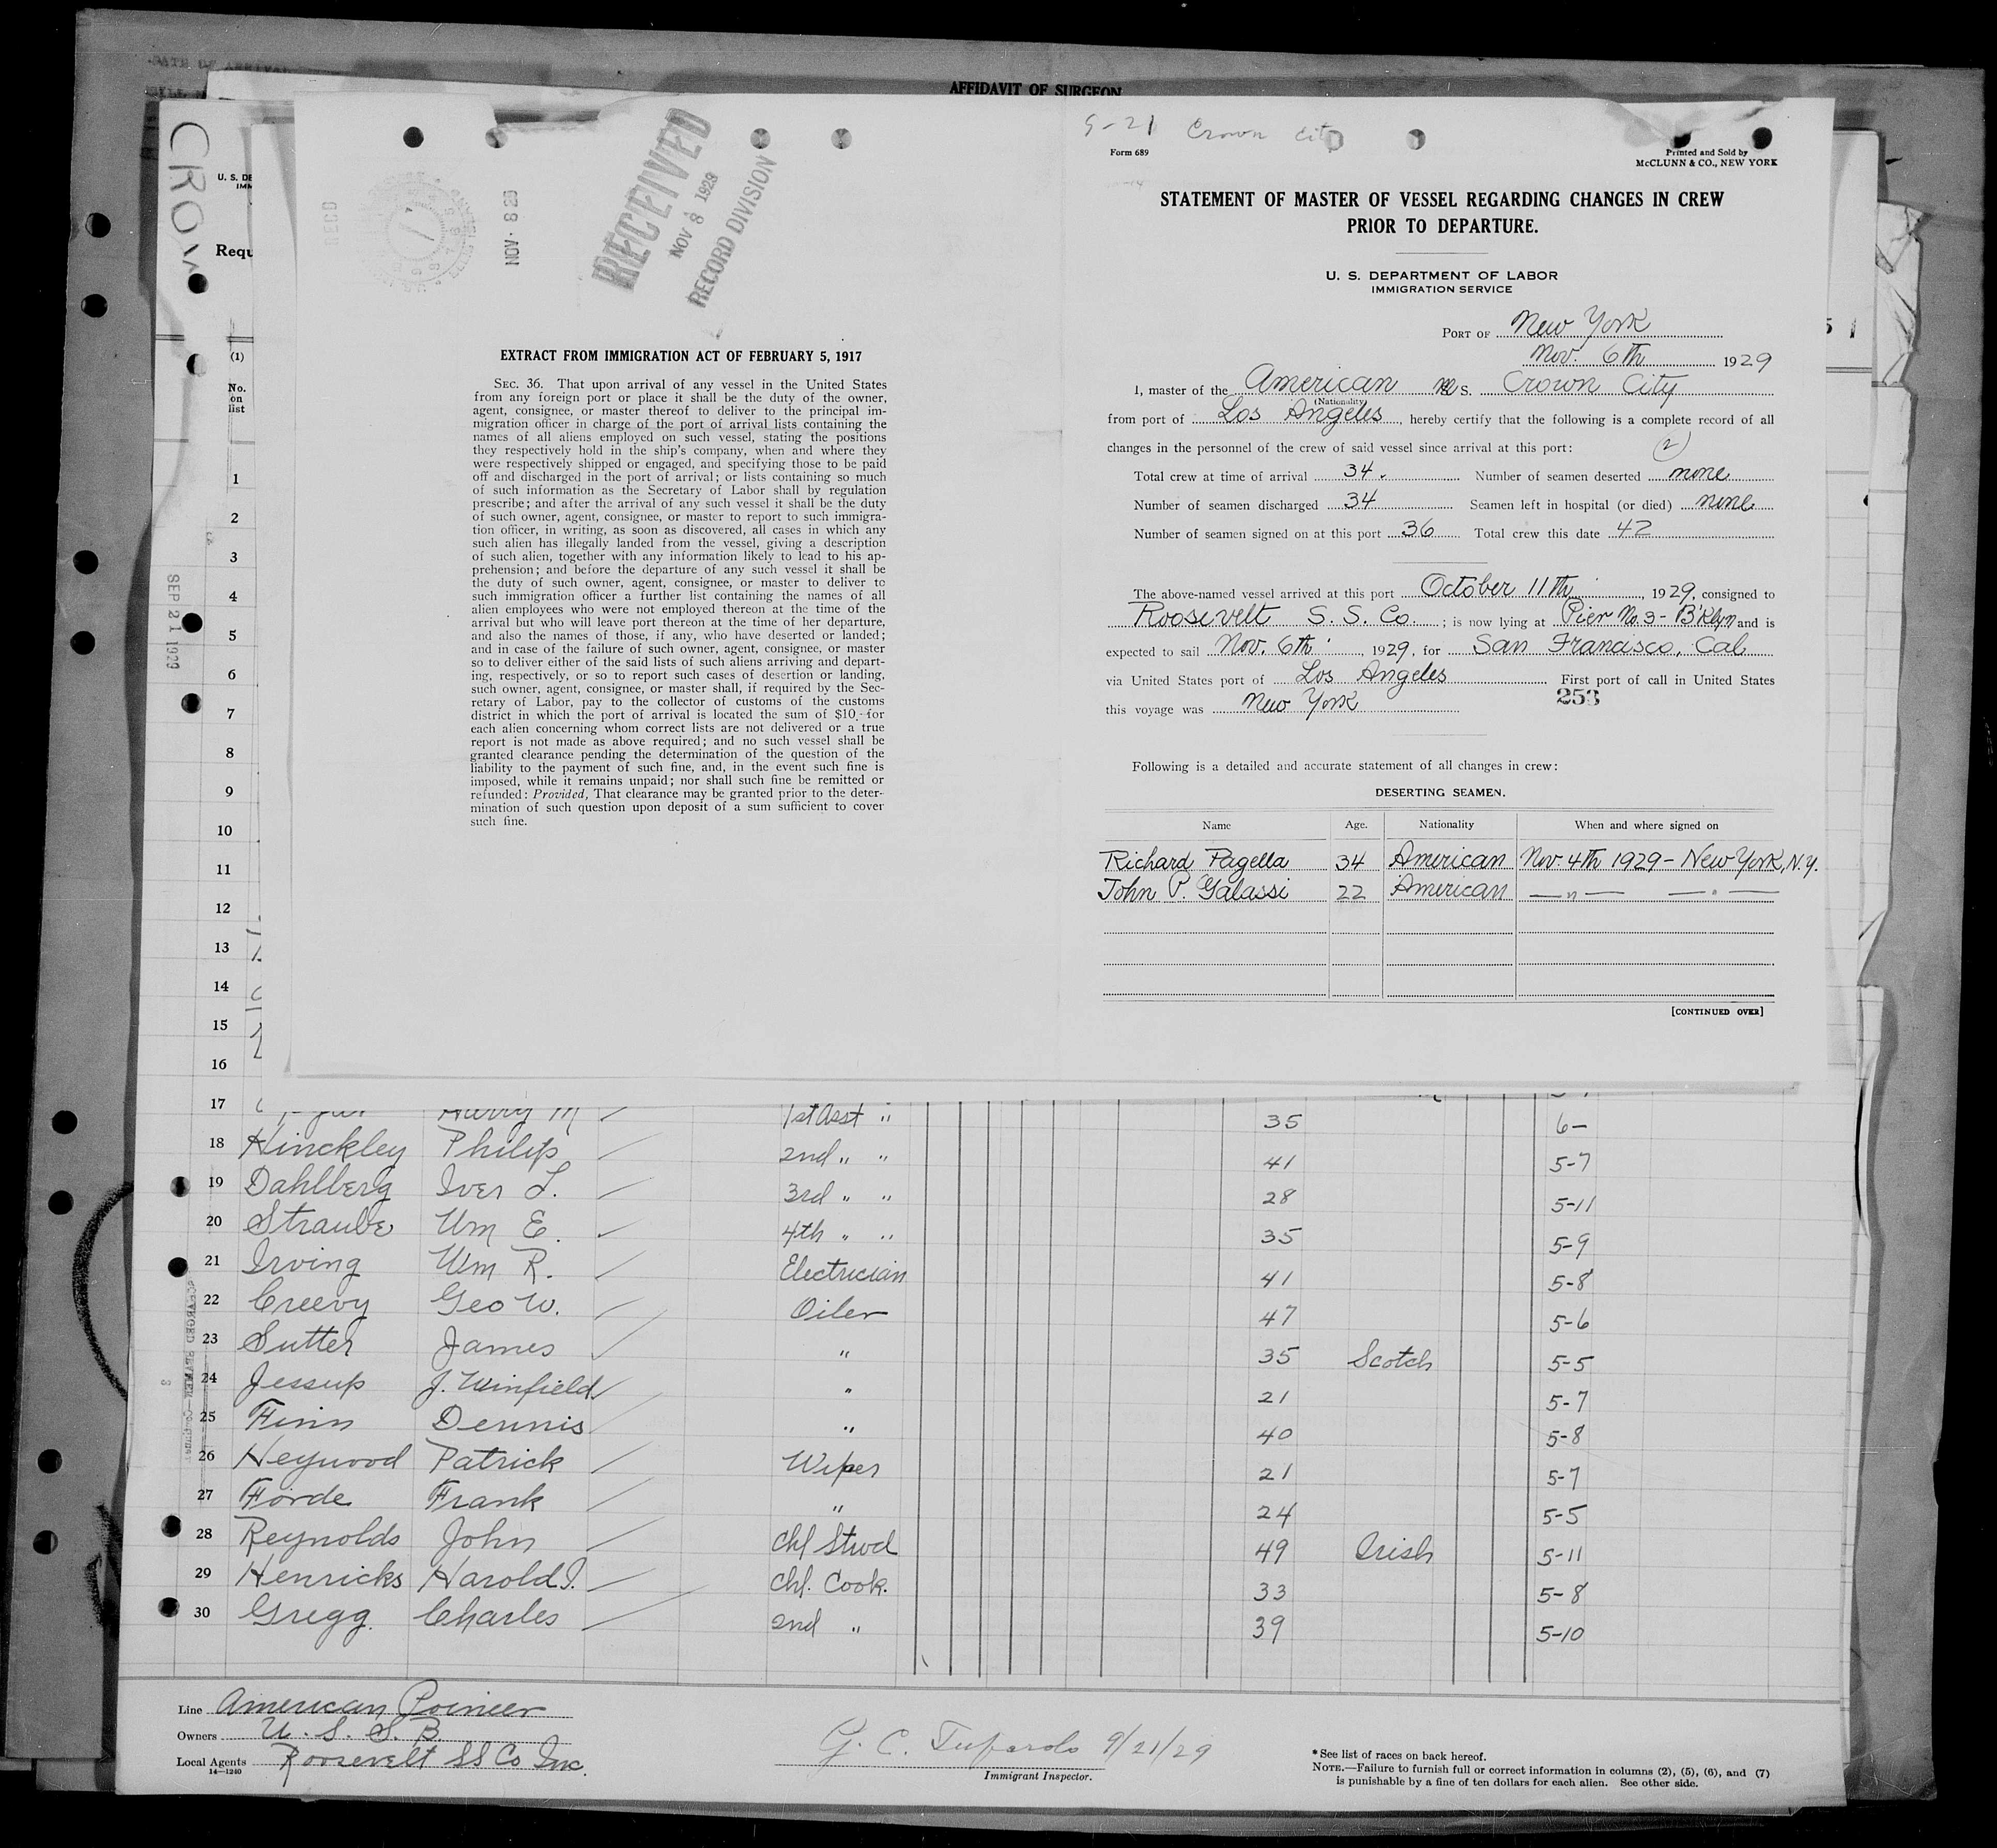 AFFIDAVIT OF SURGEON
CROW
U. S. DE
IMM
Requ
RECD
NOV. 8 29
RECEIVED
NOV 8 1929
RECORD DIVISION
EXTRACT FROM IMMIGRATION ACT OF FEBRUARY 5, 1917
SEC. 36. That upon arrival of any vessel in the United States
from any foreign port or place it shall be the duty of the owner,
agent, consignee, or master thereof to deliver to the principal im-
migration officer in charge of the port of arrival lists containing the
names of all aliens employed on such vessel, stating the positions
they respectively hold in the ship's company, when and where they
were respectively shipped or engaged, and specifying those to be paid
off and discharged in the port of arrival; or lists containing so much
of such information as the Secretary of Labor shall by regulation
prescribe; and after the arrival of any such vessel it shall be the duty
of such owner, agent, consignee, or master to report to such immigra-
tion officer, in writing, as soon as discovered, all cases in which any
such alien has illegally landed from the vessel, giving a description
of such alien, together with any information likely to lead to his ap-
prehension; and before the departure of any such vessel it shall be
the duty of such owner, agent, consignee, or master to deliver to
such immigration officer a further list containing the names of all
alien employees who were not employed thereon at the time of the
arrival but who will leave port thereon at the time of her departure,
and also the names of those, if any, who have deserted or landed;
and in case of the failure of such owner, agent, consignee, or master
so to deliver either of the said lists of such aliens arriving and depart-
ing, respectively, or so to report such cases of desertion or landing,
such owner, agent, consignee, or master shall, if required by the Sec-
retary of Labor, pay to the collector of customs of the customs
district in which the port of arrival is located the sum of $10 for
each alien concerning whom correct lists are not delivered or a true
report is not made as above required; and no such vessel shall be
granted clearance pending the determination of the question of the
liability to the payment of such fine, and, in the event such fine is
imposed, while it remains unpaid; nor shall such fine be remitted or
refunded: Provided, That clearance may be granted prior to the deter-
mination of such question upon deposit of a sum sufficient to cover
such fine.
5-21 Crown City
Form 689
Printed and Sold by
McCLUNN & CO., NEW YORK
STATEMENT OF MASTER OF VESSEL REGARDING CHANGES IN CREW
PRIOR TO DEPARTURE.
U. S. DEPARTMENT OF LABOR
IMMIGRATION SERVICE
PORT OF New York
Nov. 6th 1929
I, master of the American M S. Crown City
(Nationality)
from port of Los Angeles, hereby certify that the following is a complete record of all
changes in the personnel of the crew of said vessel since arrival at this port:
(2)
Total crew at time of arrival 34. Number of seamen deserted none
Number of seamen discharged 34 Seamen left in hospital (or died) none
Number of seamen signed on at this port 36 Total crew this date 42
The above-named vessel arrived at this port October 11th, 1929, consigned to
Roosevelt S. S. Co. ; is now lying at Pier No. 3 - B'klyn and is
expected to sail Nov. 6th, 1929, for San Francisco, Cal
via United States port of Los Angeles First port of call in United States
this voyage was New York
253
Following is a detailed and accurate statement of all changes in crew:
DESERTING SEAMEN.
Name Age. Nationality When and where signed on
Richard Pagella 34 American Nov. 4th 1929 - New York, N.Y.
John P. Galassi 22 American — " — — " —
[CONTINUED OVER]
SEP 21 1929
(1)
No.
on
list
1
2
3
4
5
6
7
8
9
10
11
12
13
14
15
16
17 Harry M 1st Asst " 35 6-
18 Hinckley Philip 2nd " " 41 5-7
19 Dahlberg Iver L. 3rd " " 28 5-11
20 Straube Wm E. 4th " " 35 5-9
21 Irving Wm R. Electrician 41 5-8
22 Creevy Geo W. Oiler 47 5-6
23 Sutter James " 35 Scotch 5-5
24 Jessup J. Winfield " 21 5-7
25 Finn Dennis " 40 5-8
26 Heywood Patrick Wiper 21 5-7
27 Forde Frank " 24 5-5
28 Reynolds John Chf Stwd 49 Irish 5-11
29 Henricks Harold J. Chf. Cook. 33 5-8
30 Gregg. Charles 2nd " 39 5-10
Line American Poineer
Owners U. S. S. B.
Local Agents Roosevelt SS Co Inc.
14—1240
9/21/29
Immigrant Inspector.
* See list of races on back hereof.
NOTE.—Failure to furnish full or correct information in columns (2), (5), (6), and (7)
is punishable by a fine of ten dollars for each alien. See other side.